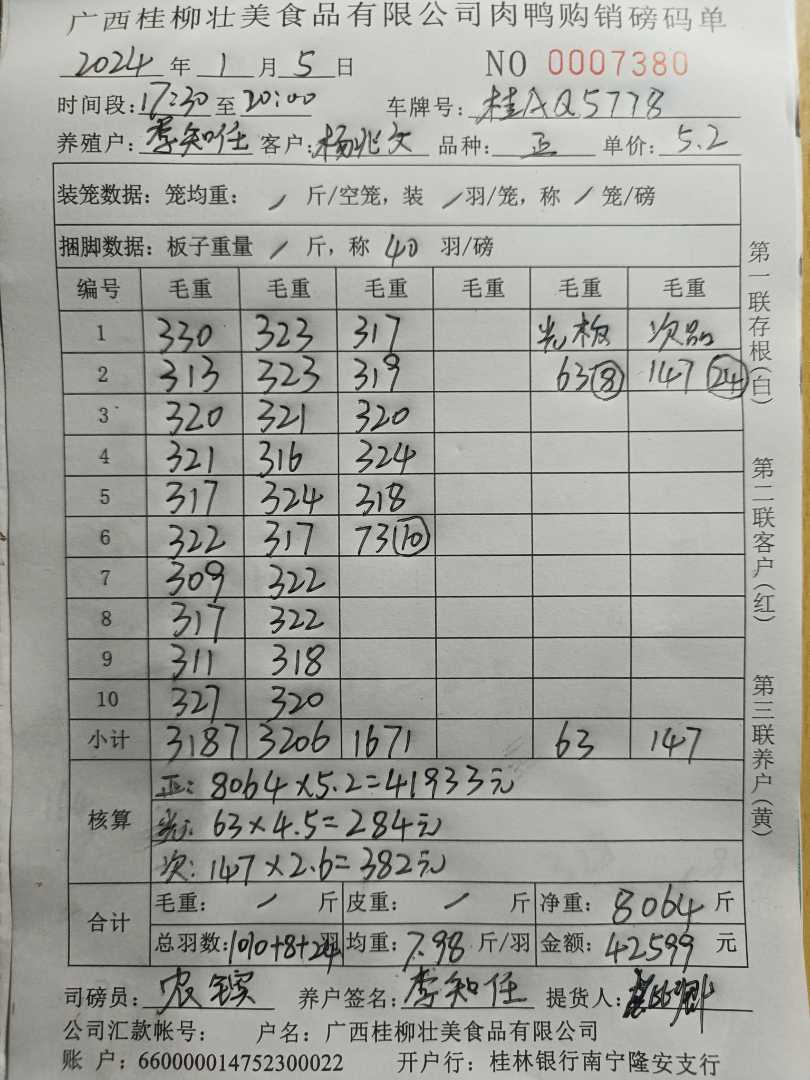 广西桂柳壮美食品有限公司肉鸭购销磅码单
2024 年 1 月 5 日 NO 0007380
时间段: 17:30 至 20:00 车牌号: 桂AQ5778
养殖户: 李知任 客户: 杨兆文 品种: 正 单价: 5.2
装笼数据: 笼均重: / 斤/空笼, 装 / 羽/笼, 称 / 笼/磅
捆脚数据: 板子重量 / 斤, 称 40 羽/磅
编号 毛重 毛重 毛重 毛重 毛重 毛重
1 330 323 317 光板 次品
2 313 323 319 63(8) 147(24)
3 320 321 320
4 321 316 324
5 317 324 318
6 322 317 73(10)
7 309 322
8 317 322
9 311 318
10 327 320
小计 3187 3206 1671 63 147
核算 正: 8064×5.2=41933元
光: 63×4.5=284元
次: 147×2.6=382元
合计 毛重: / 斤 皮重: / 斤 净重: 8064 斤
总羽数: 1010+8+24 羽 均重: 7.98 斤/羽 金额: 42599 元
司磅员: 农镔 养户签名: 李知任 提货人:
公司汇款帐号: 户名: 广西桂柳壮美食品有限公司
账 户: 660000014752300022 开户行: 桂林银行南宁隆安支行
第一联存根(白)
第二联客户(红)
第三联养户(黄)